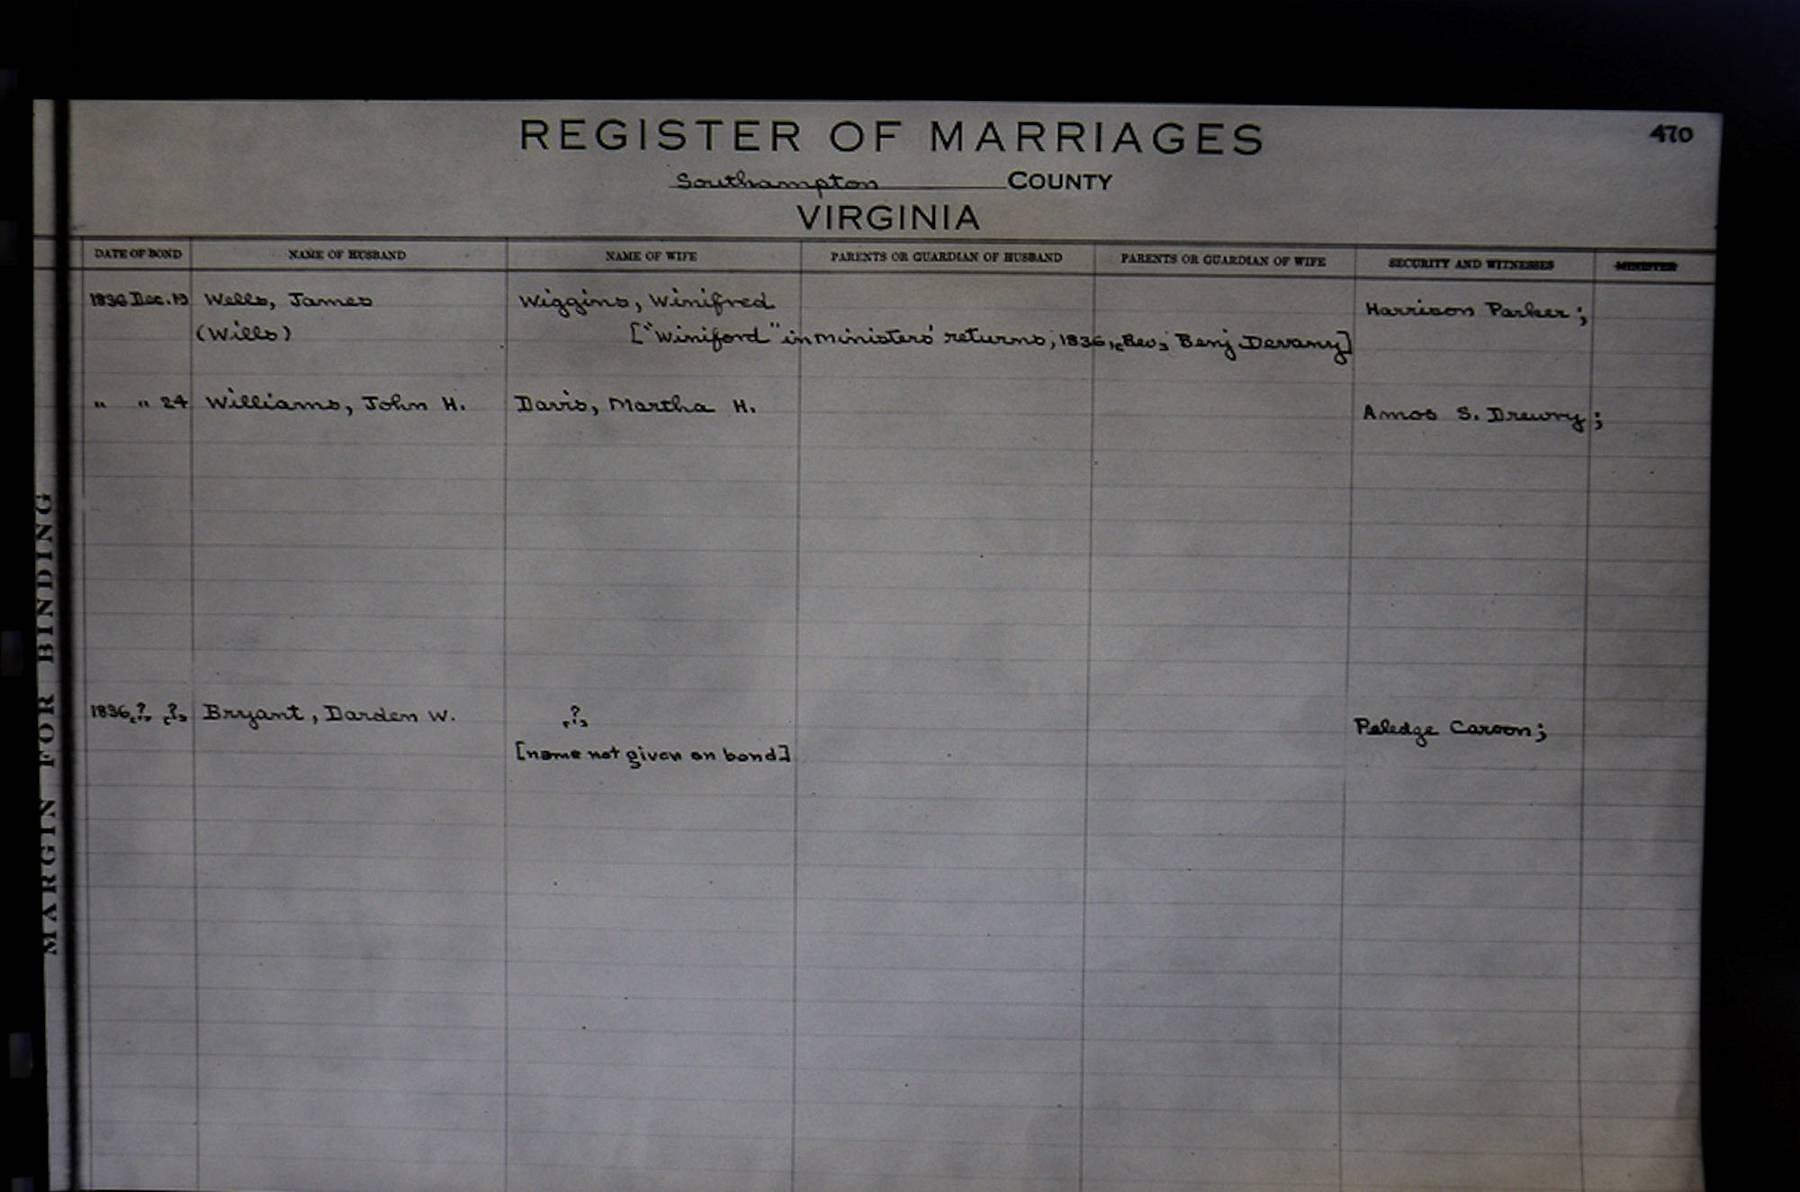 REGISTER OF MARRIAGES 470
Southampton COUNTY
VIRGINIA
DATE OF BOND NAME OF HUSBAND NAME OF WIFE PARENTS OR GUARDIAN OF HUSBAND PARENTS OR GUARDIAN OF WIFE SECURITY AND WITNESSES MINISTER
1836 Dec. 19 Wells, James Wiggins, Winifred Harrison Parker;
(Wills) ["Winiford" in ministers' returns, 1836, [Rev] Benj Devany]
" " 24 Williams, John H. Davis, Martha H. Amos S. Drewry;
1836 [?] [?] Bryant, Darden W. [?] Peledge Carson;
[name not given on bond]
MARGIN FOR BINDING